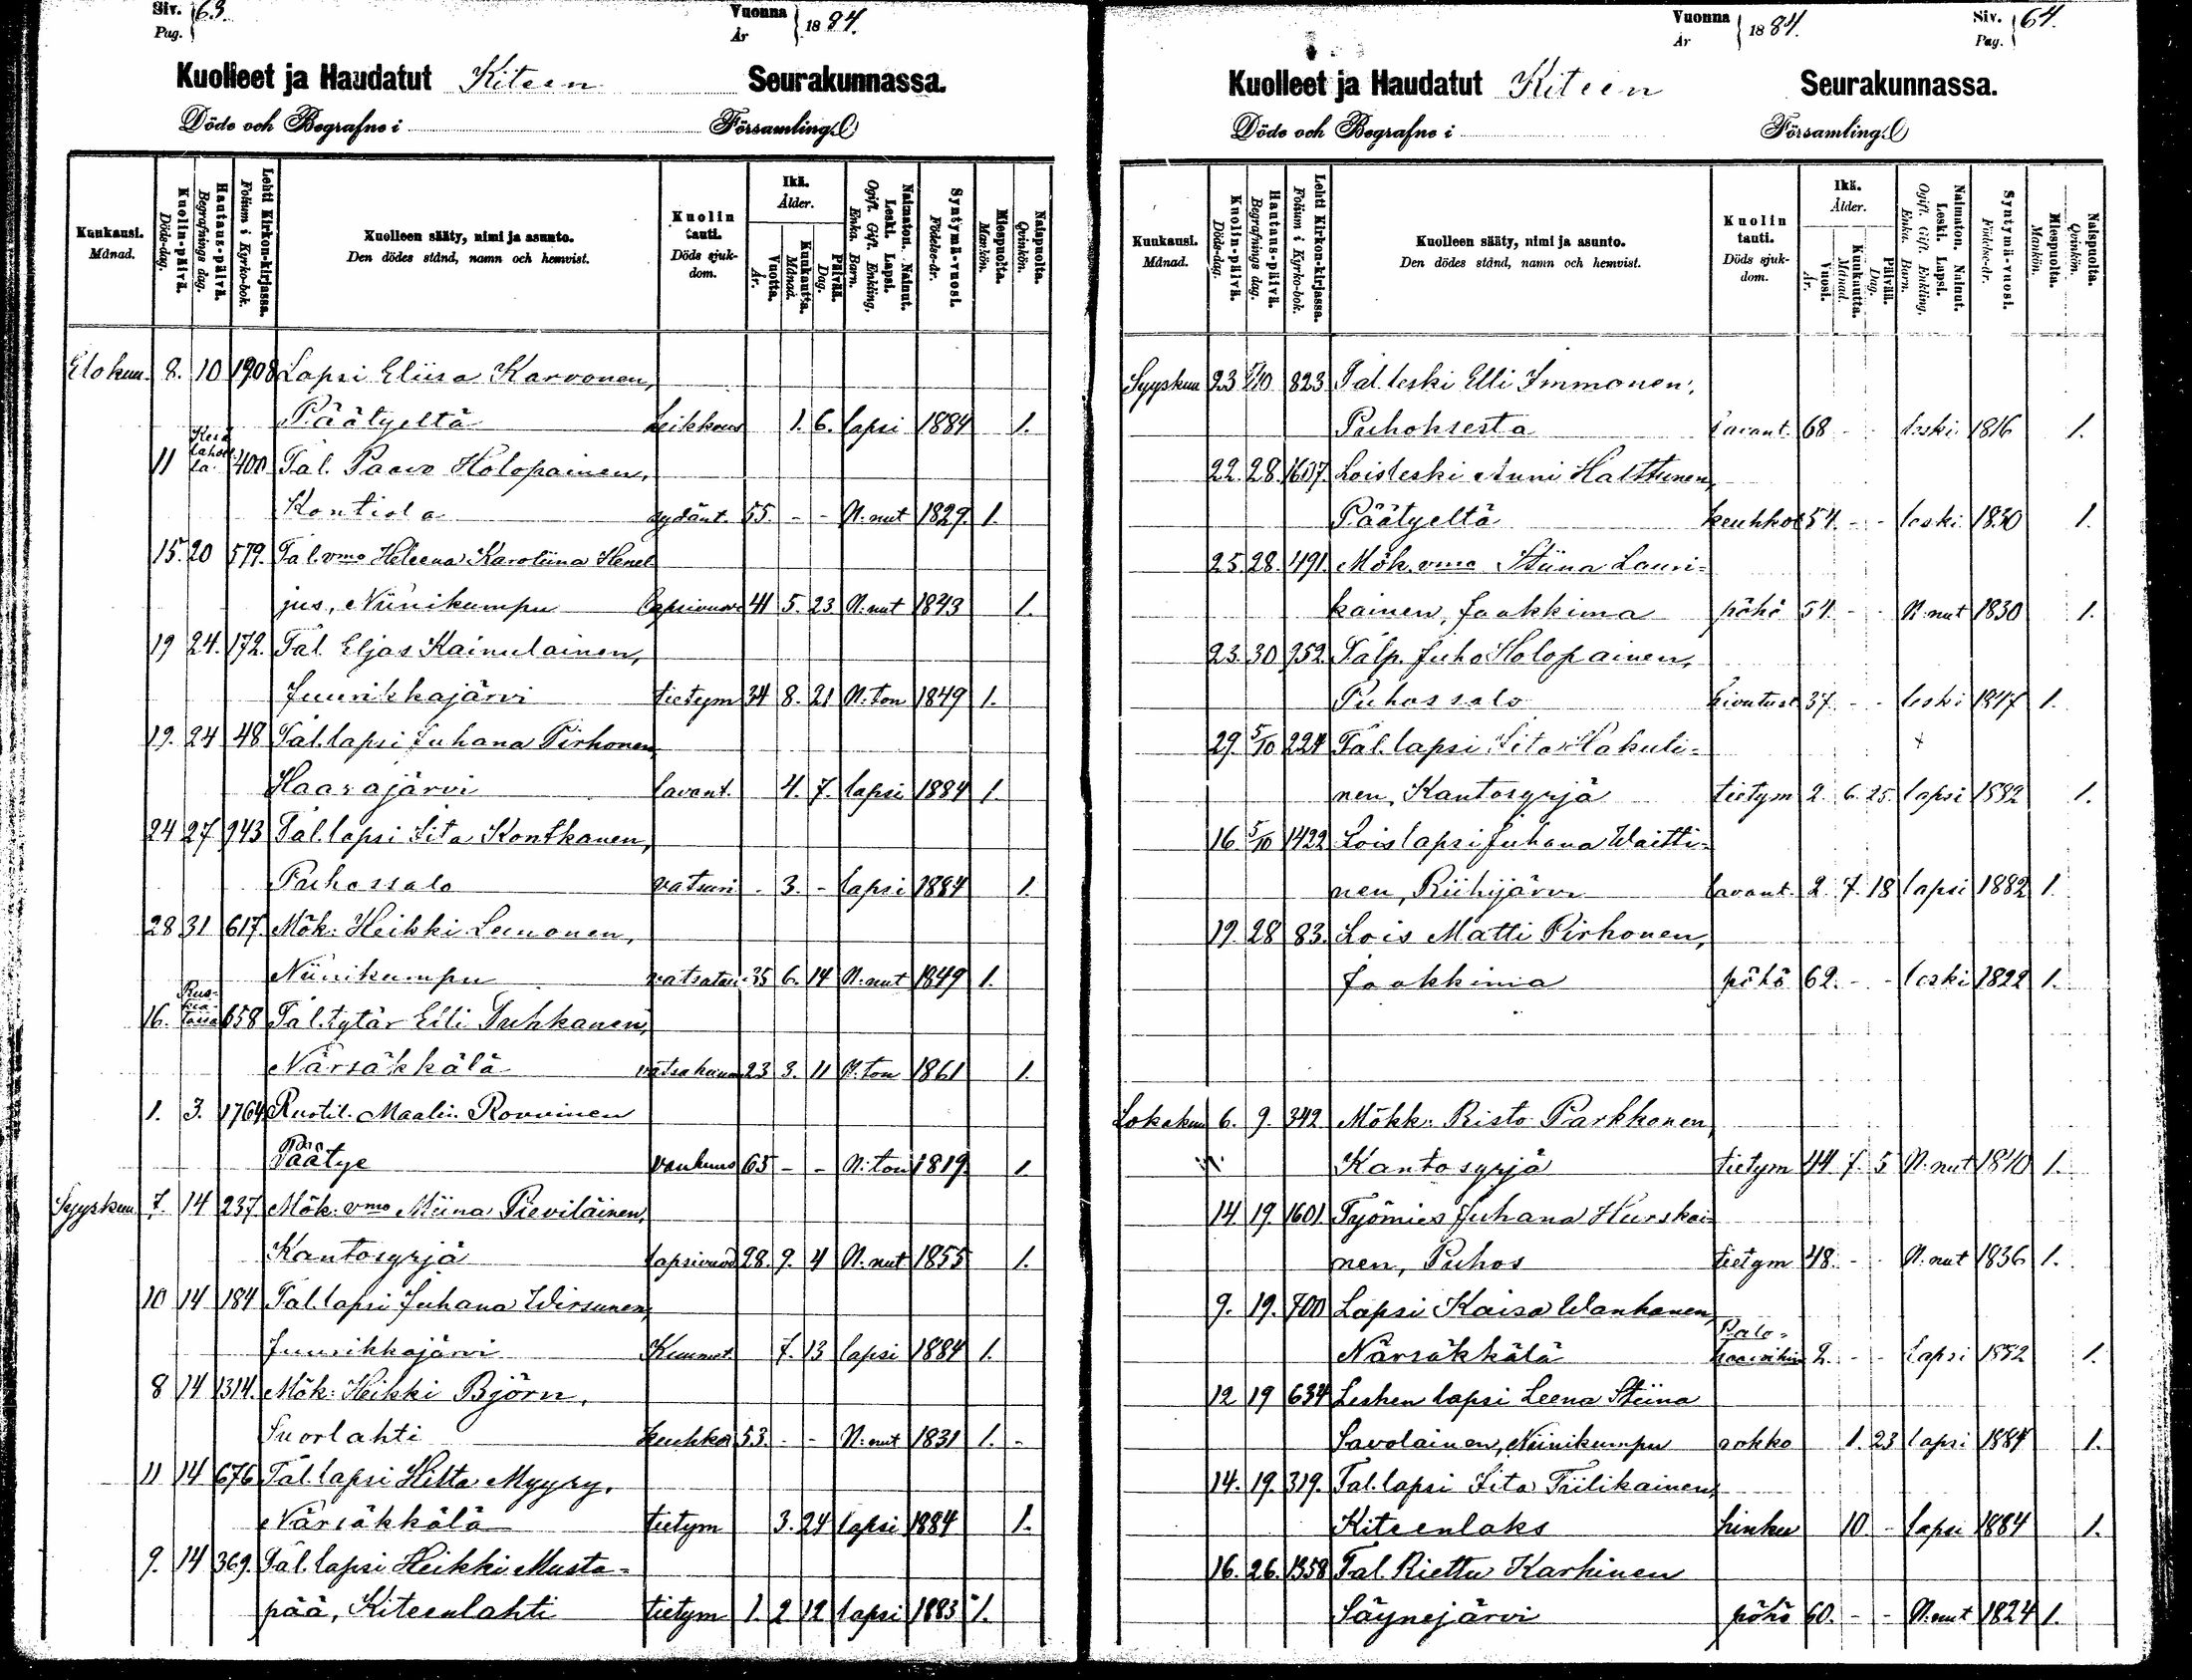 Siv. Pag. 63.
Vuonna År 1884.
Kuolleet ja Haudatut Kiteen Seurakunnassa.
Döde och Begrafne i Församling.
Kuukausi. Månad.
Kuolin-päivä. Döds-dag.
Hautaus-päivä. Begrafnings dag.
Lehti Kirkon-kirjassa. Folium i Kyrko-bok.
Kuolleen sääty, nimi ja asunto. Den dödes stånd, namn och hemvist.
Kuolin tauti. Döds sjukdom.
Ikä. Ålder.
Vuotta. År.
Kuukautta. Månad.
Päivää. Dag.
Naimaton. Nainut. Leski. Lapsi. Ogift. Gift. Enkling. Enka. Barn.
Syntymä-vuosi. Födelse-år.
Miespuolta. Mankön.
Naispuolta. Qvinkön.
Elokuu. 8. 10 1908 Lapsi Eliisa Karvonen,
Päätyeltä leikkous 1. 6. lapsi 1884 1.
11 400 Tal. Paavo Holopainen,
Kontiola sydänt. 55. - - N. nut 1829 1.
15. 20 579. Tal. vmo Heleena Karoliina Henel
jus, Niinikumpu lapsivuo 41 5. 23 N. nut 1843 1.
19 24. 172. Tal. Eljas Kainulainen,
Juurikkajärvi tietym 34 8. 21 N. ton 1849 1.
19. 24 48 Tal. lapsi Juhana Pirhonen,
Haarajärvi lavant. 4. 7. lapsi 1884 1.
24 27 943 Tal. lapsi Iita Kontkanen,
Puhossalo vatsuri - 3. - lapsi 1884 1.
28 31 617. Mök: Heikki Leinonen,
Niinikumpu vatsatau 35 6. 14 N. nut 1849 1.
16. 658 Tal. tytär Elli Tuhkanen,
Närsäkkälä 23 3. 11 N. ton 1861 1.
1. 3. 1764 Ruotil. Maalin Rouvinen
Päätye vanhuus 65 - - N: ton 1819 1
Syyskuu 7. 14 237. Mök. vmo Miina Pieviläinen,
Kantosyrjä lapsivuod 28. 9. 4 N. nut 1855 1.
10 14 184 Tal. lapsi Juhana Wirsunen,
Juurikkajärvi Kummt. 7. 13 lapsi 1884 1.
8 14 1314. Mök: Heikki Björn,
Suorlahti keuhko 53. - - N: nut 1831 1. -
11 14 676 Tal. lapsi Hilta Myyry,
Närsäkkälä tietym 3. 24 lapsi 1884 1.
9. 14 369. Tal. lapsi Heikki Musta-
pää, Kiteenlahti tietym 1. 2 12 lapsi 1883 1.
Vuonna År 1884.
Siv. Pag. 64.
Kuolleet ja Haudatut Kiteen Seurakunnassa.
Döde och Begrafne i Församling.
Kuukausi. Månad.
Kuolin-päivä. Döds-dag.
Hautaus-päivä. Begrafnings dag.
Lehti Kirkon-kirjassa. Folium i Kyrko-bok.
Kuolleen sääty, nimi ja asunto. Den dödes stånd, namn och hemvist.
Kuolin tauti. Döds sjukdom.
Ikä. Ålder.
Vuosi. År.
Kuukautta. Månad.
Päivää. Dag.
Naimaton. Nainut. Leski. Lapsi. Ogift. Gift. Enkling. Enka. Barn.
Syntymä-vuosi. Födelse-år.
Miespuolta. Mankön.
Naispuolta. Qvinkön.
Syyskuu 23 823 Tal. leski Elli Immonen,
Puhoksesta lavant. 68 - - leski 1816 1.
22. 28. 1617. Loisleski Anni Halttunen,
Päätyeltä keuhkot 54. - - leski 1830 1.
25. 28. 491. Mök. vmo Stiina Lauri-
kainen, Jaakkima pöhö 54. - - N. nut 1830 1.
23. 30 952. Talp. Juho Holopainen,
Puhossalo 37. - - leski 1847 1.
29. 5/10 224 Tal. lapsi Iita Hakuli-
nen, Kantosyrjä tietym 2. 6. 25. lapsi 1882 1.
16 5/10 1422 Lois lapsi Juhana Waitti-
nen, Riihijärvi lavant. 2. 7. 18 lapsi 1882 1.
19. 28 83. Lois Matti Pirhonen,
Jaakkima pöhö 62. - - leski 1822 1.
Lokakuu 6. 9. 342 Mökk: Risto Parkkonen,
Kantosyrjä tietym 44 7. 5 N. nut 1840 1.
14. 19. 1601 Työmies Juhana Hurskai-
nen, Puhos tietym 48. - - N. nut 1836 1.
9. 19. 700 Lapsi Kaisa Wanhanen
Närsäkkälä Palo- 2. - - Lapsi 1882 1.
12 19 634 Lesken lapsi Leena Stiina
Savolainen, Niinikumpu rokko 1. 23 lapsi 1884 1.
14. 19. 319. Tal. lapsi Iita Tiilikainen,
Kiteenlaks hinku 10 - lapsi 1884 1.
16. 26. 1358 Tal. Riettu Karhinen
Säynejärvi pöhö 60. - - N. nut 1824 1.